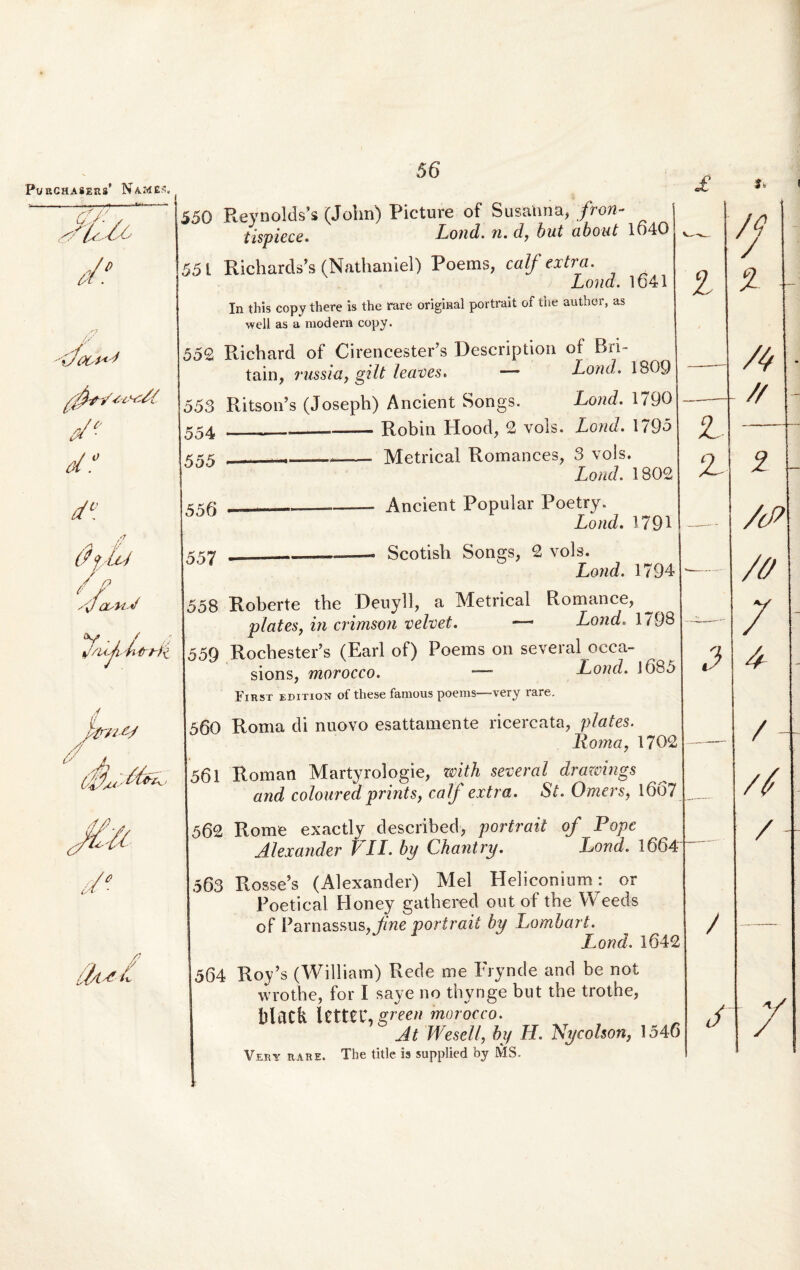 56
Purchasers' Names.
£ s.
Hill 550 Reynolds's (John) Picture of Susanna, fron-
tispiece. Lond. n. d, but about 1640 — 19
do 551 Richards's (Nathaniel) Poems, calf extra.
Lond. 1641 2 2
In this copy there is the rare original portrait of the author, as
well as a modern copy.
552 Richard of Cirencester's Description of Bri-
tain, russia, gilt leaves. — Lond. 1809 — 14
553 Ritson's (Joseph) Ancient Songs. Lond. 1790 — 11
do 554 ——— Robin Hood, 2 vols. Lond. 1795 2 —
do 555 ——— Metrical Romances, 3 vols.
Lond. 1802 2 2
do 556 ——— Ancient Popular Poetry.
Lond. 1791 — 10
557 ——— Scotish Songs, 2 vols.
Lond. 1794 — 10
558 Roberte the Deuyll, a Metrical Romance,
plates, in crimson velvet. — Lond. 1798 — 7
559 Rochester's (Earl of) Poems on several occa-
sions, morocco. — Lond. 1685 3 4
First edition of these famous poems—very rare.
Jones 560 Roma di nuovo esattamente ricercata, plates.
Roma, 1702 — 1
561 Roman Martyrologie, with several drawings
and coloured prints, calf extra. St. Omers, 1667 — 16
Hill 562 Rome exactly described, portrait of Pope
Alexander VII. by Chantry. Lond. 1664 — 1
do 563 Rosse's (Alexander) Mel Heliconium: or
Poetical Honey gathered out of the Weeds
of Parnassus, fine portrait by Lombart.
Lond. 1642 1 —
564 Roy's (William) Rede me Frynde and be not
wrothe, for I saye no thynge but the trothe,
black letter, green morocco.
At Wesell, by H. Nycolson, 1546 5 7
Very rare. The title is supplied by MS.